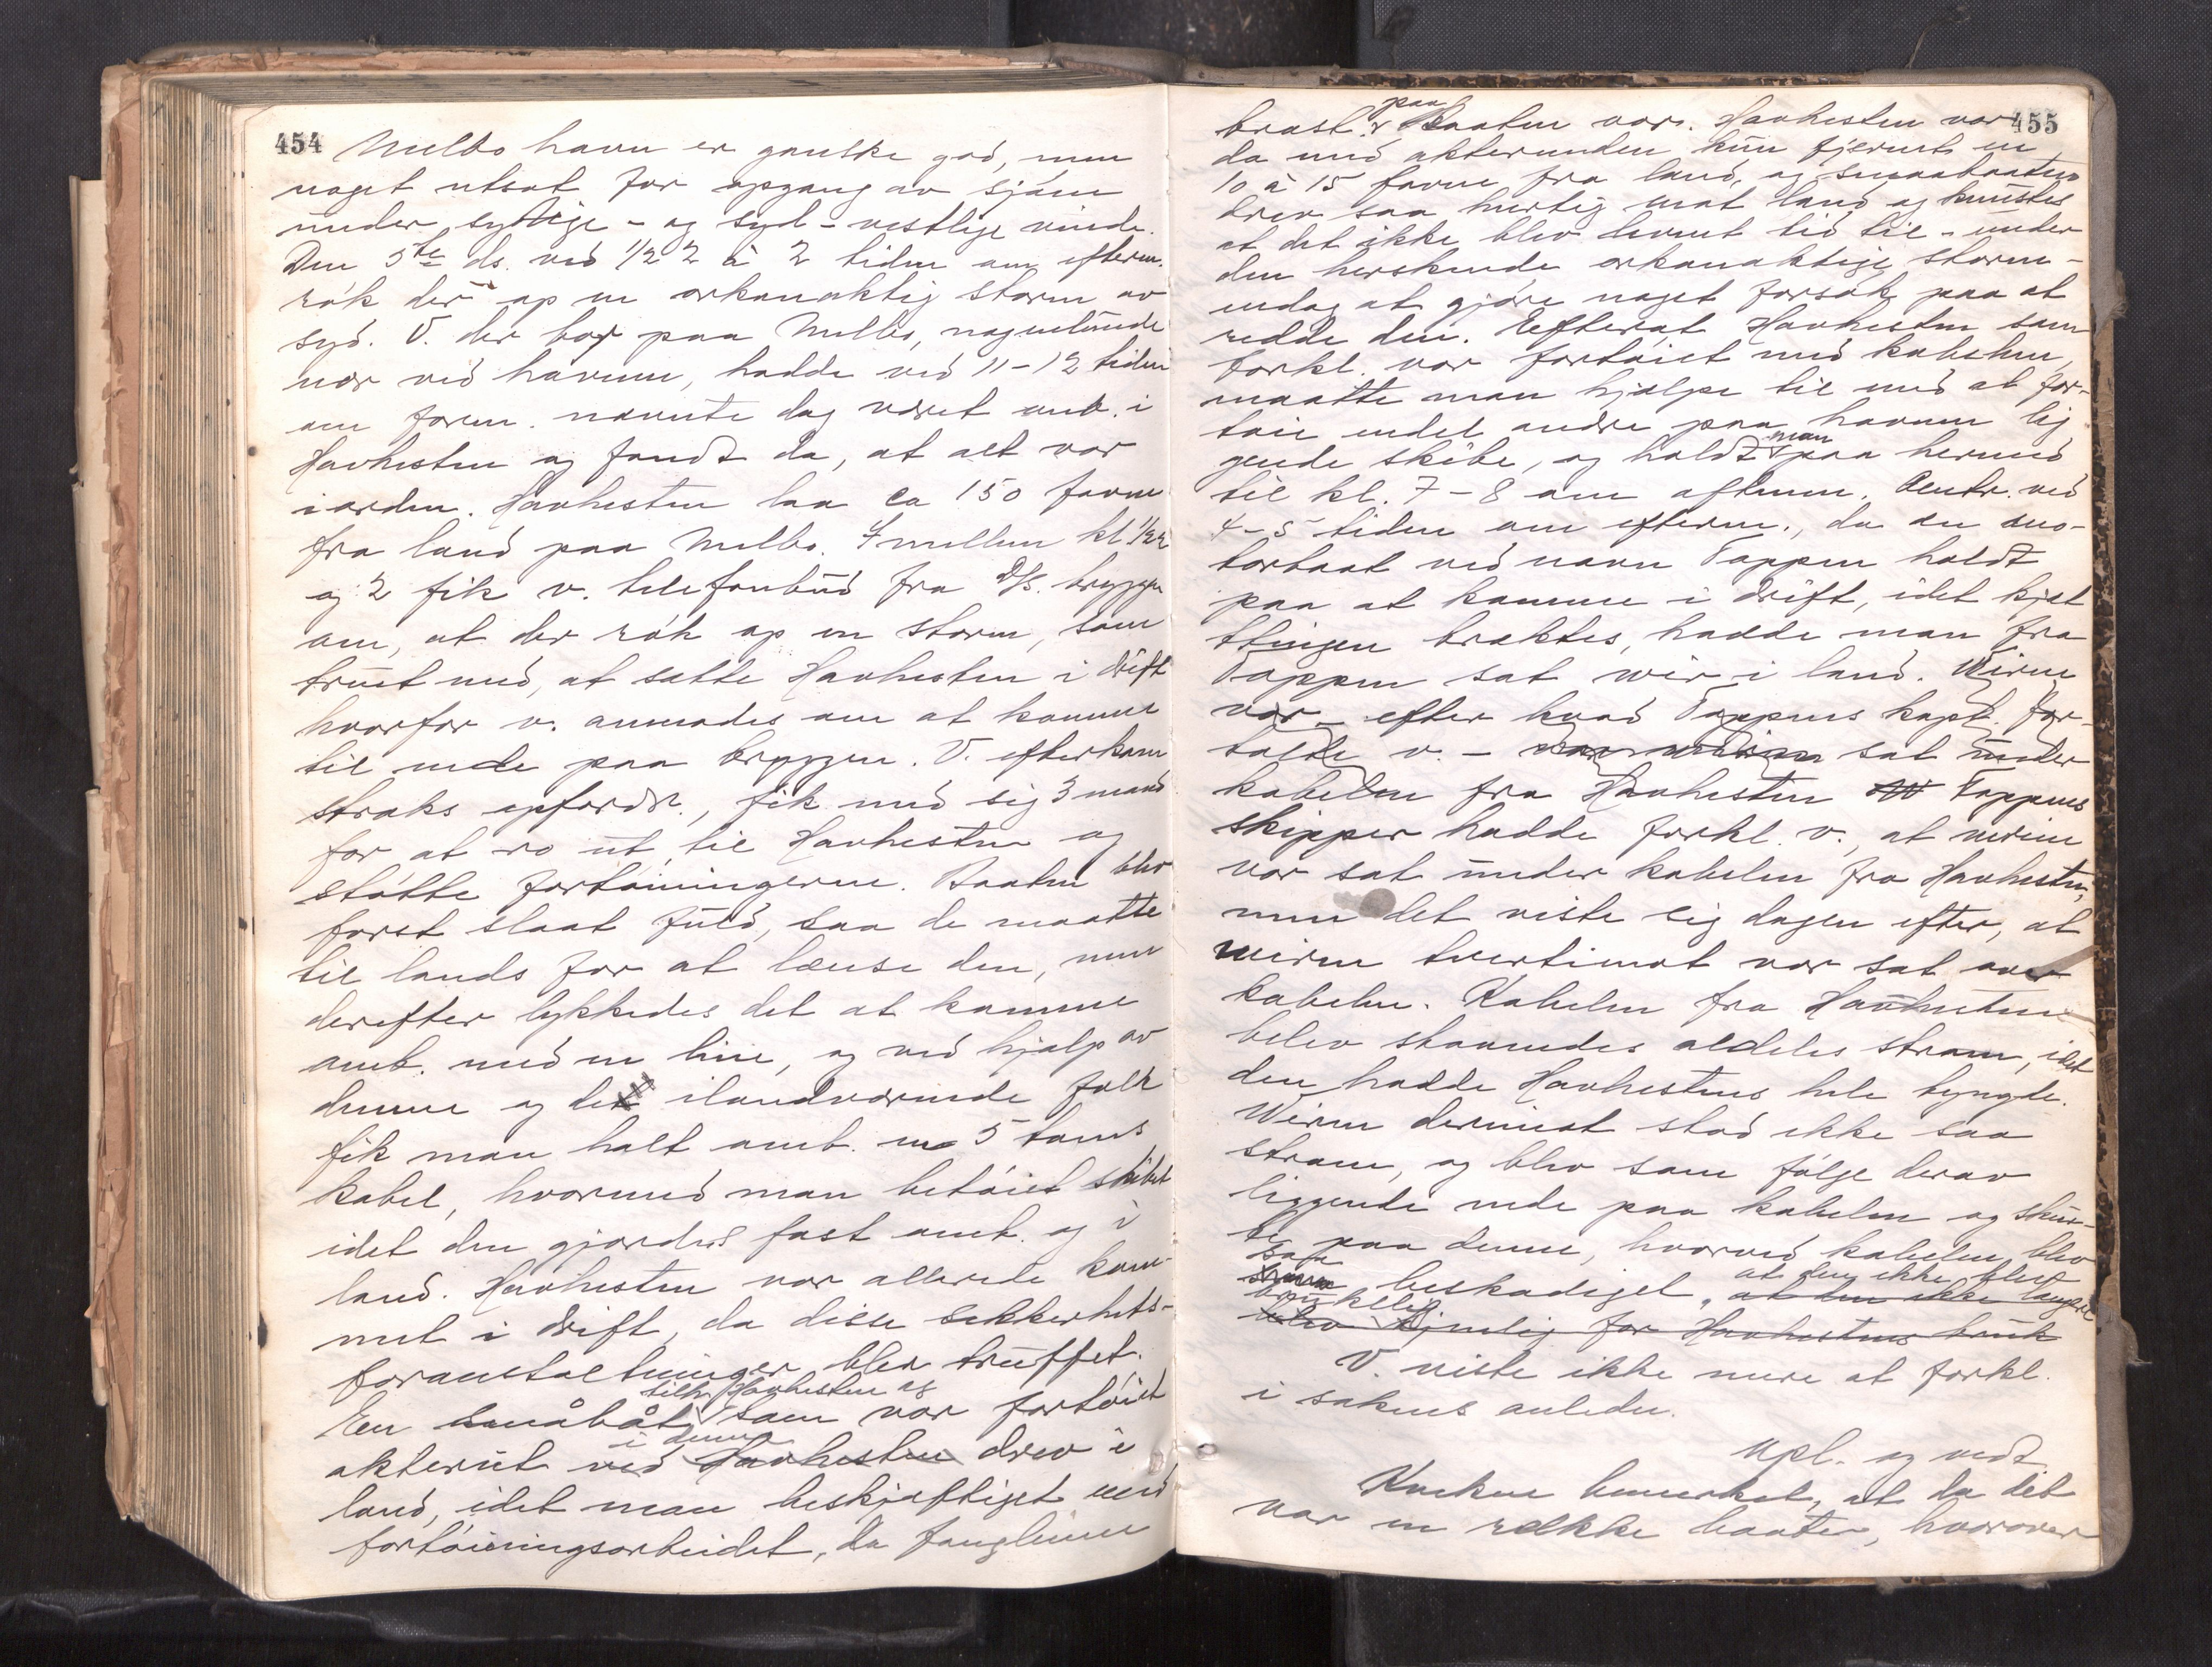 454
Melbo havn er ganske god, men
noget utsat for opgang av sjøen
under sydlige - og syd-vestlige vinde.
Den 5te ds. ved 1/2 2 à 2 tiden om efterm.
røk der op en orkanaktig storm av
syd. V. der bor paa Melbo, nogenlunde
nær ved havnen, hadde ved 11-12 tiden
om form. nævnte dag været omb. i
Havhesten og fandt da, at alt var
i orden. Havhesten laa ca 150 favne
fra land paa Melbo. Imellem kl 1/2 2
og 2 fik v. telefonbud fra D/S. bryggen
om, at der røk op en storm, som
truet med, at sætte Havhesten i drift
hvorfor v. anmodes om at komme
til rede paa bryggen. V. efterkom
straks opfordr., fik med sig 3 mand
for at ro ut til Havhesten og
støtte fortøiningerne. Baaten blev
først slaat fuld, saa de maatte
til lands for at lænse den, men
derefter lykkedes det at komme
omb. med en line, og ved hjælp av
denne og de ilandværende folk
fik man halt omb. en 5 toms
kabel, hvormed man betøiet skibet
idet den gjordes fast omb. og i
land. Havhesten var allerede kom-
met i drift, da disse sikkerhets-
foranstaltninger blev truffet.
tilh. Havhesten og
En småbåt som var fortøiet
i denne
akterut ved Havhesten drev i
land, idet man beskjæftiget med
fortøiningsarbeidet, da fanglinen
455
paa
brast. Baaten var. Havhesten var
da med akterenden kun fjernet en
10 à 15 favne fra land, og smaabaaten
drev saa hurtig mot land og knustes
at det ikke blev levnet tid til - under
den herskende orkanaktige storm -
endog at gjøre noget forsøk paa at
redde den. Efterat Havhesten som
forkl. var fortøiet med kabelen,
maatte man hjælpe til med at for-
tøie endel andre paa havnen lig
man
gende skibe, og holdt paa hermed
til kl. 7-8 om aftenen. Omtr. ved
4-5 tiden om efterm., da en mo-
torbaat ved navn Tappen holdt
paa at komme i drift, idet kjæt
tingen braktes, hadde man fra
Tappen sat wir i land. Wiren
var - efter hvad Tappens kapt. for-
talte v. - sat under
kabelen fra Havhesten Tappens
skipper hadde forkl. v., at wiren
var sat under kabelen fra Havhesten,
men det viste sig dagen efter, at
wiren tvertimot var sat over
kabelen. Kabelen fra Havhesten
blev staaendes aldeles stram, idet
den hadde Havhestens hele tyngde.
Wiren derimot stod ikke saa
stram, og blev som følge derav
liggende nede paa kabelen og skur-
te paa denne, hvorved kabelen blev
saa beskadiget, at den ikke blev
brukelig at den ikke længere
blev tjenelig for Havhestens bruk
V. viste ikke mere at forkl.
i sakens anledn.
Opl. og vedt.
Kneken bemerket, at da det
var en række baater, hvorover